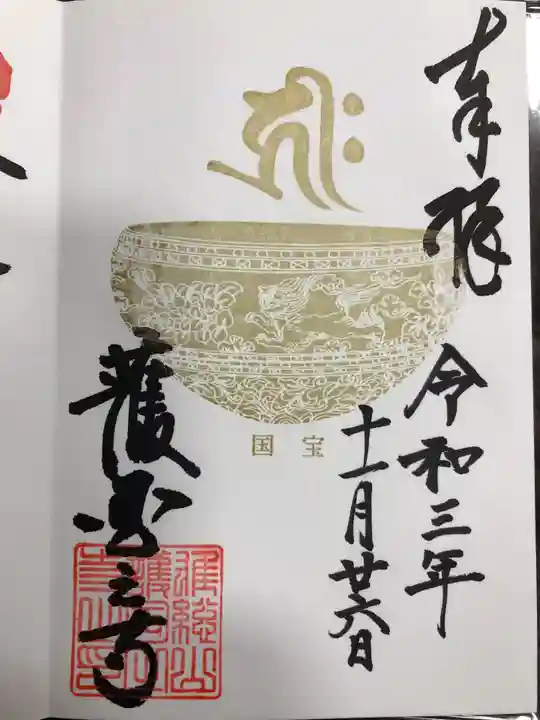 奉拝
令和三年
十一月廿六日
国宝
護国之寺